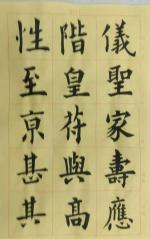 儀聖家壽應
階皇荷與高
性至京甚其